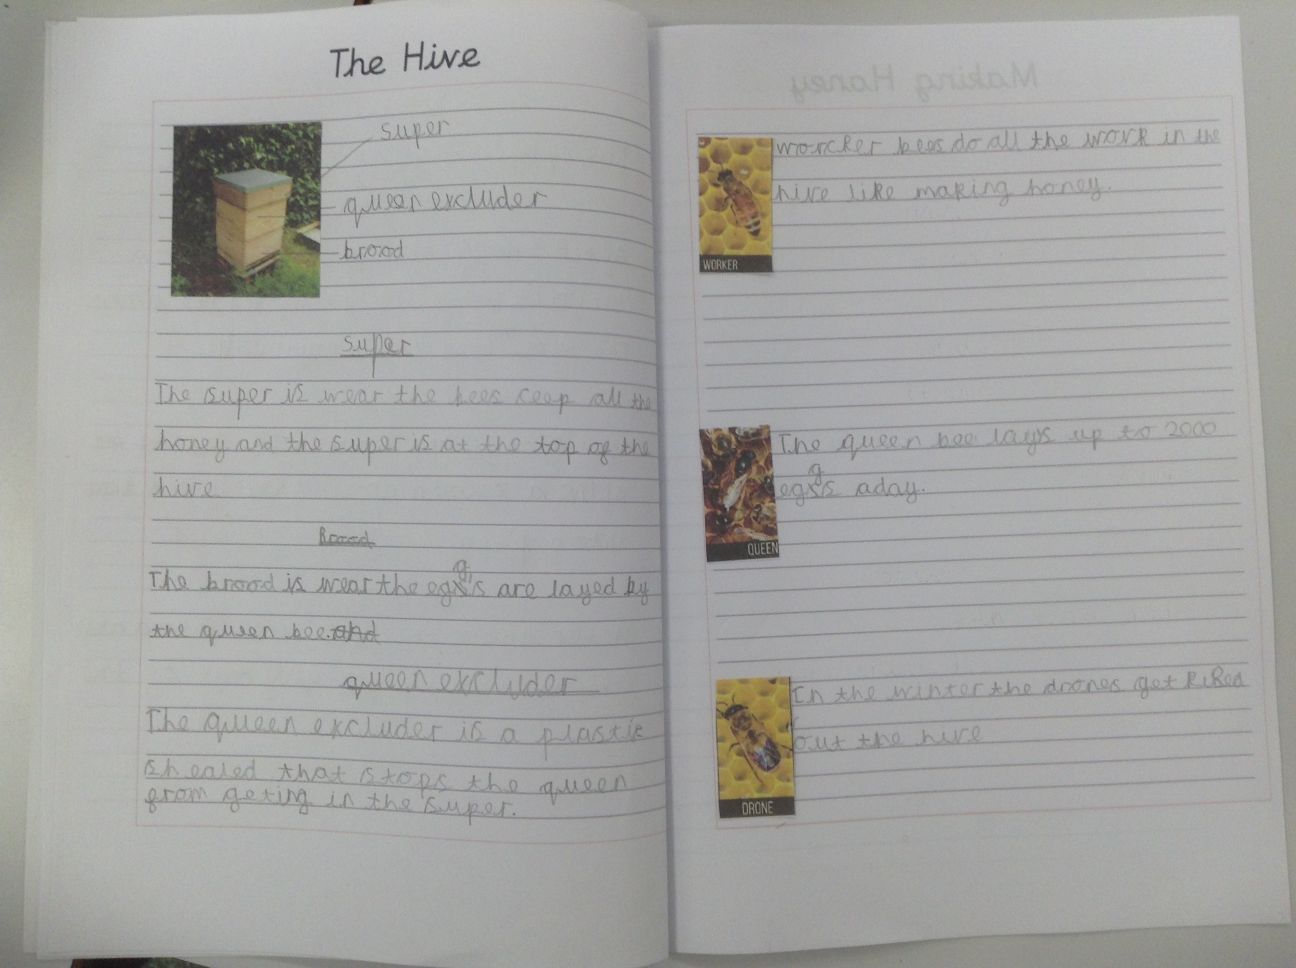 The Hive
super
queen excluder
brood
super
The super is wear the bees ceep all the
honey and the super is at the top of the
hive
Brood
The brood is wear the eggs are layed by
the queen bee. and
queen excluder
The queen excluder is a plastic
sheated that stops the queen
from geting in the super.
Making Honey
worcker bees do all the work in the
hive like making honey.
WORKER
The queen bee lays up to 2000
eggs aday.
QUEEN
In the winter the drones get kiked
out the hive
DRONE